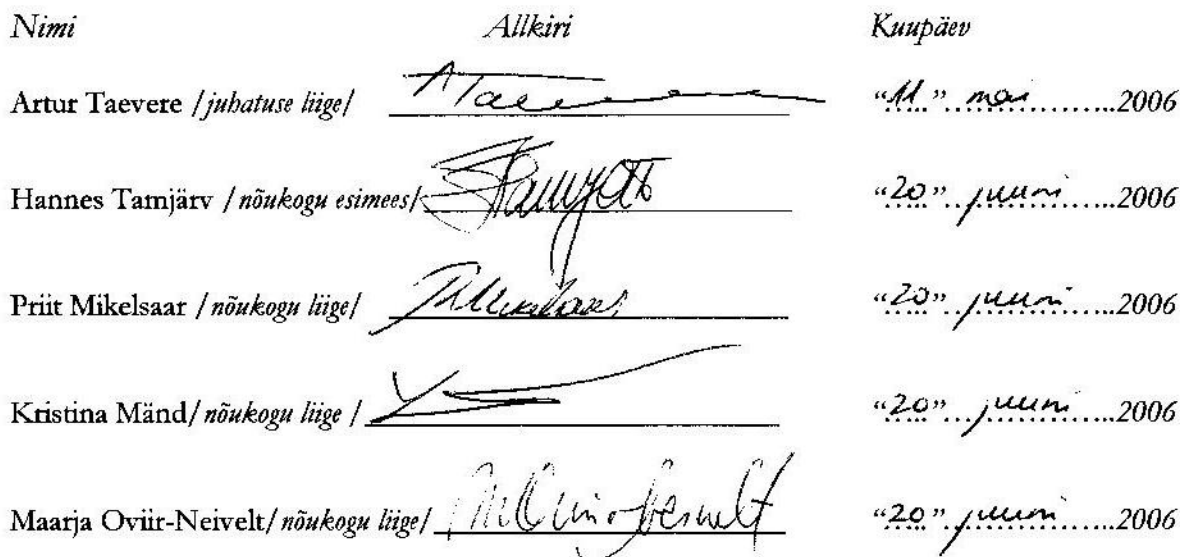 Nimi Allkiri Kuupäev
Artur Taevere /juhatuse liige/ ATaevere "11." mai 2006
Hannes Tamjärv /nõukogu esimees/ "20" juuni 2006
Priit Mikelsaar /nõukogu liige/ "20" juuni 2006
Kristina Mänd/nõukogu liige / "20" juuni 2006
Maarja Oviir-Neivelt/nõukogu liige/ "20" juuni 2006